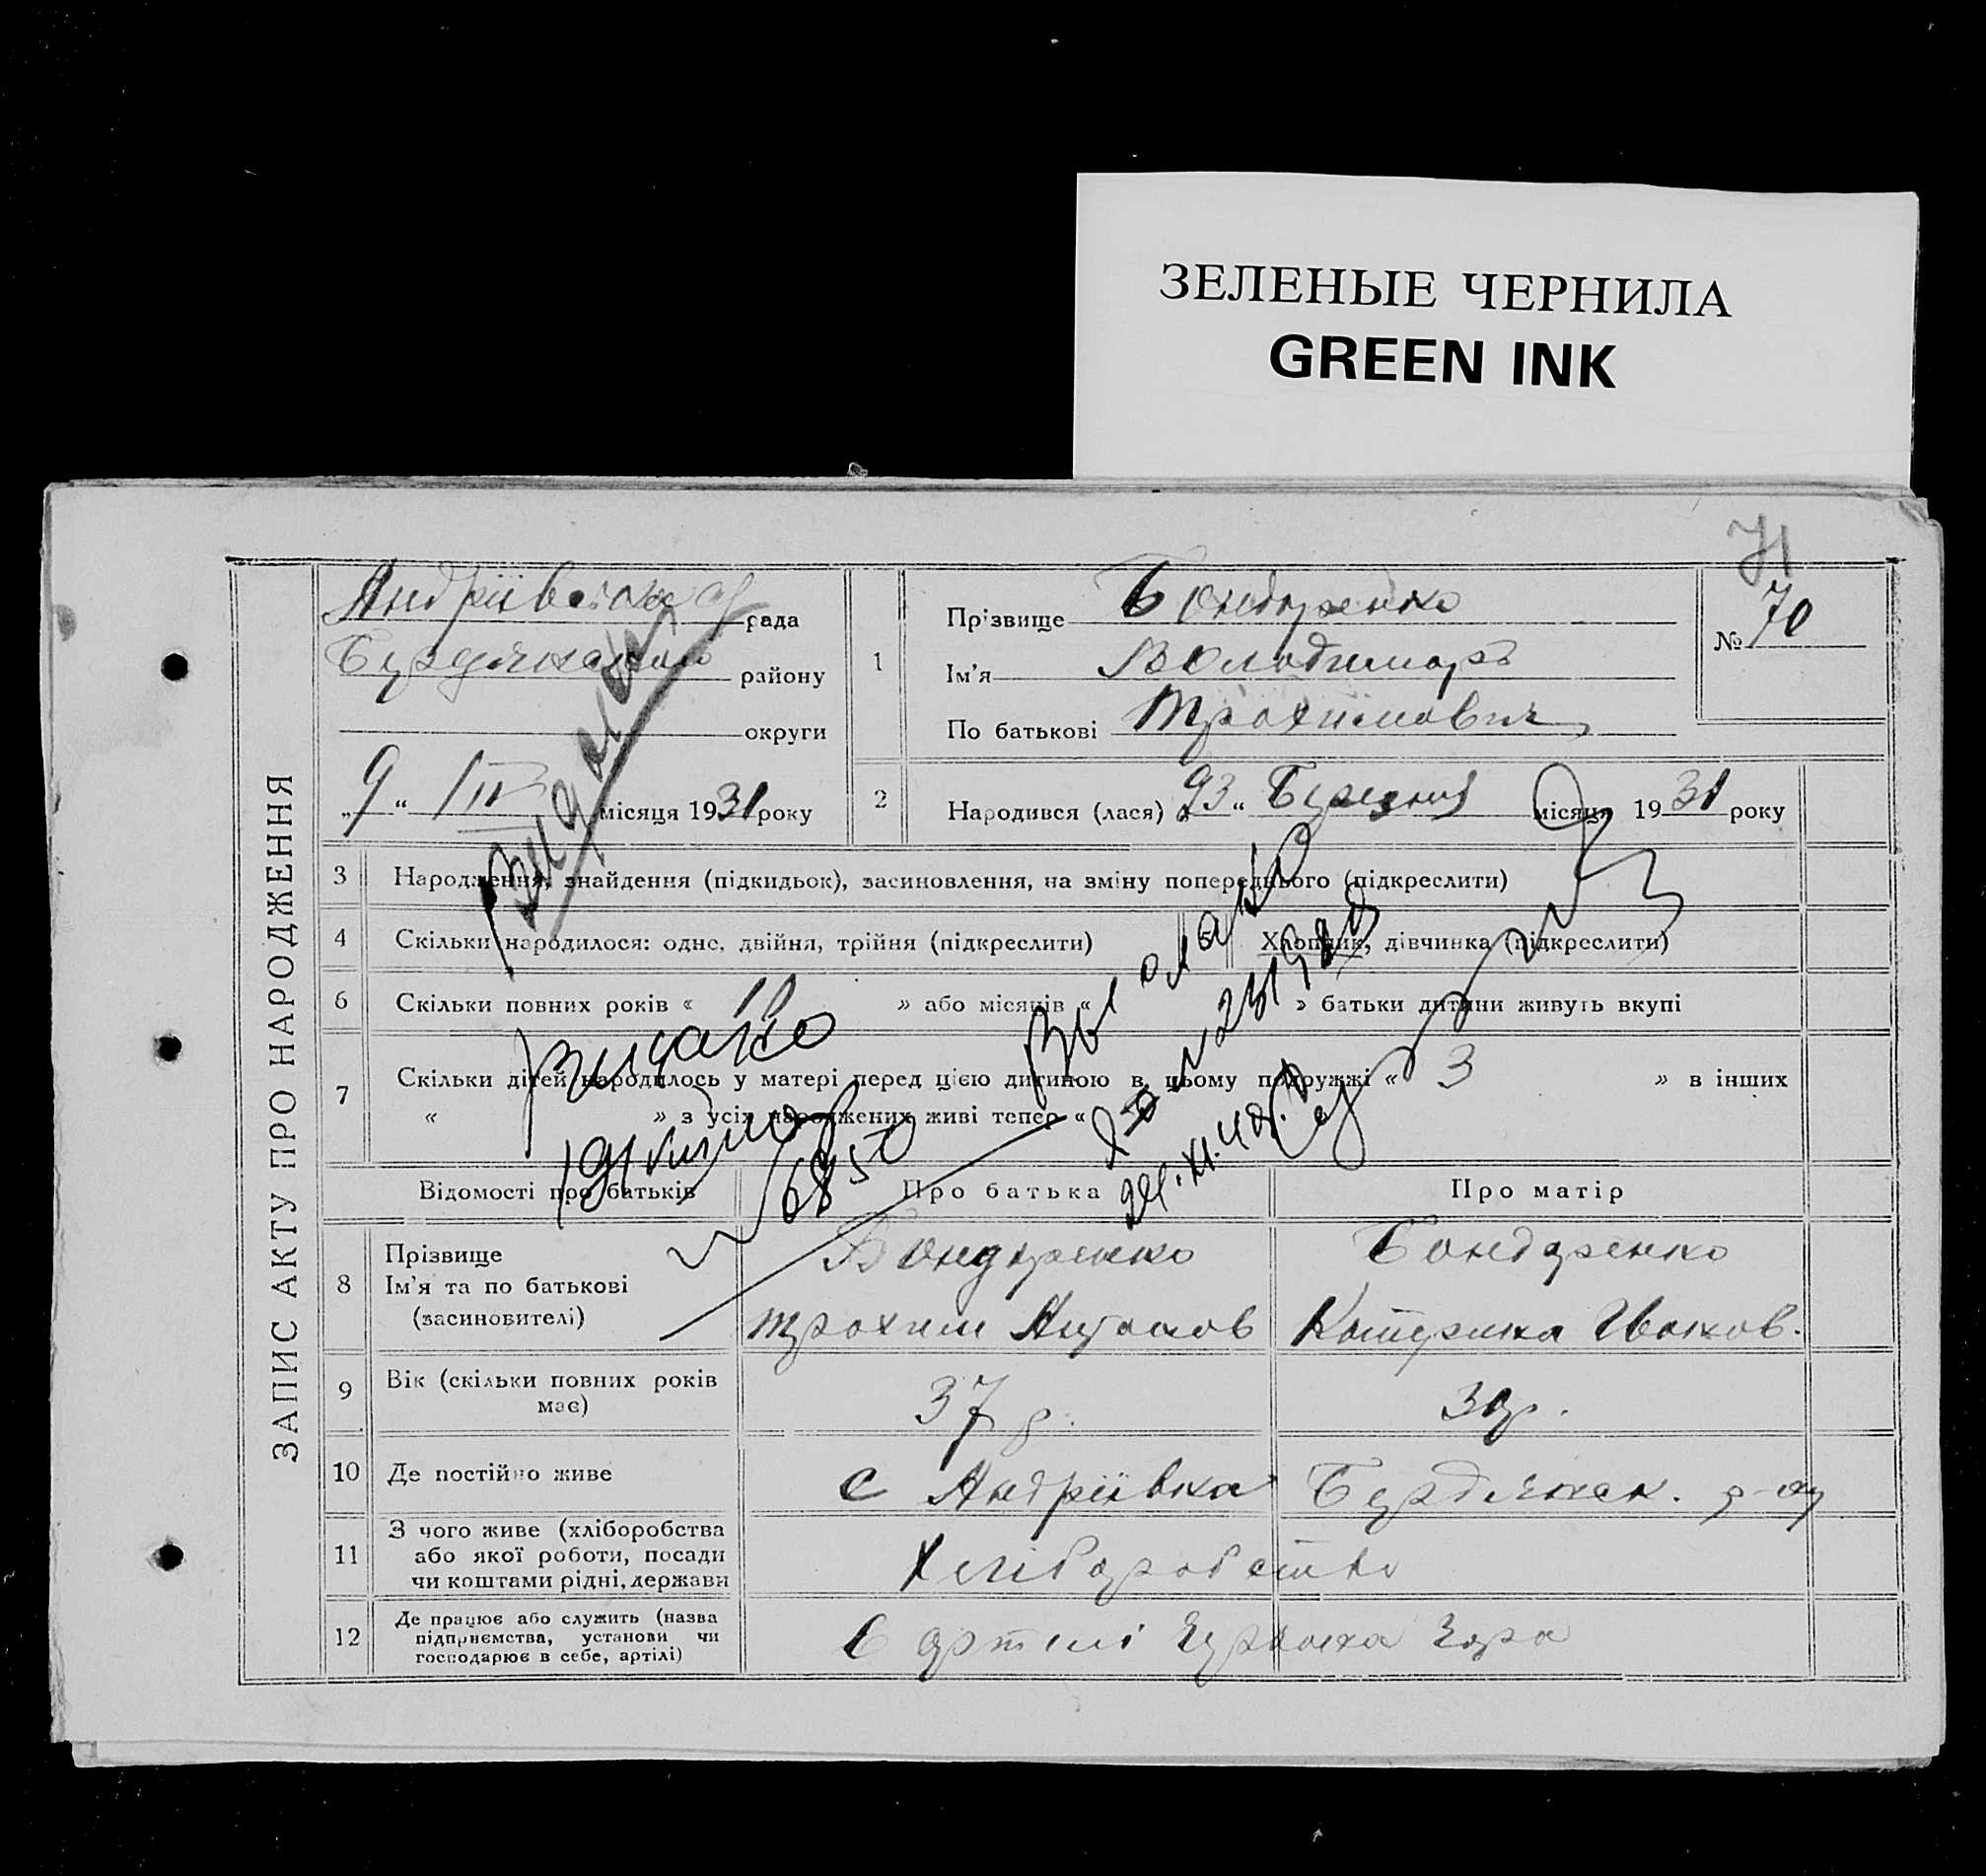 ЗЕЛЕНЫЕ ЧЕРНИЛА
GREEN INK
71
ЗАПИС АКТУ ПРО НАРОДЖЕННЯ
Андріївська рада
Бердянського району
округи
„9“ III місяця 1931 року
1
Прізвище Бондаренко
Ім'я Володимир
По батькові Трохимович
№ 70
2
Народився (лася) 23 “ Березня місяця 1931 року
3 Народження, знайдення (підкидьок), засиновлення, на зміну попереднього (підкреслити)
4 Скільки народилося: одне, двійня, трійня (підкреслити) 5 Хлопчик, дівчинка (підкреслити)
6 Скільки повних років « 10 » або місяців « » батьки дитини живуть вкупі
7 Скільки дітей народилось у матері перед цією дитиною в цьому подружжі « 3 » в інших
« » з усіх народжених живі тепер «
Відомості про батьків Про батька Про матір
8 Прізвище
Ім'я та по батькові
(засиновителі)
Бондаренко Бондаренко
Трохим Катерина Іванов.
9 Вік (скільки повних років має) 37 р. 30 р.
10 Де постійно живе с Андріївка Бердянск. р-ну
11 З чого живе (хліборобства
або якої роботи, посади
чи коштами рідні, держави
Хліборобство
12 Де працює або служить (назва
підприємства, установи чи
господарює в себе, артілі)
В артілі Зоря